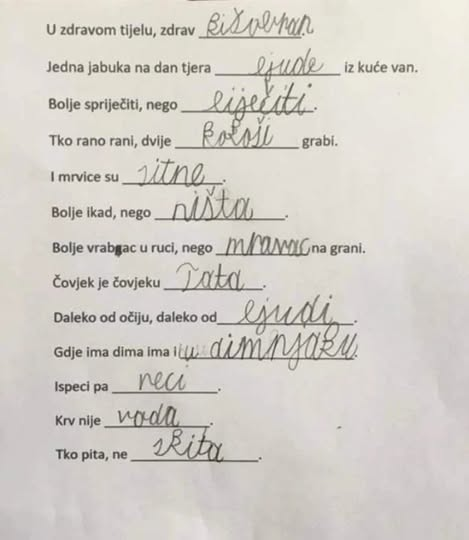 U zdravom tijelu, zdrav kišobran
Jedna jabuka na dan tjera ljude iz kuće van.
Bolje spriječiti, nego liječiti.
Tko rano rani, dvije kokoši grabi.
I mrvice su sitne.
Bolje ikad, nego ništa.
Bolje vrabac u ruci, nego mravac na grani.
Čovjek je čovjeku Tata.
Daleko od očiju, daleko od ljudi.
Gdje ima dima ima i u dimnjaku.
Ispeci pa reci.
Krv nije voda.
Tko pita, ne skita.